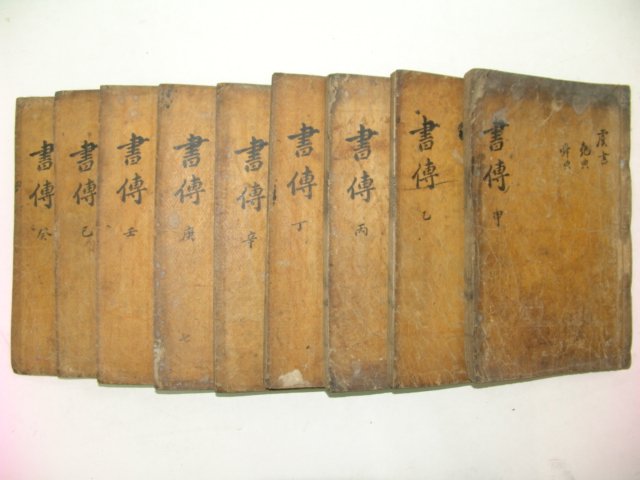 虞書
堯典
舜典
書傳 甲
書傳 乙
書傳 丙
書傳 丁
書傳 辛
書傳 庚
七
書傳 壬
書傳 己
書傳 癸